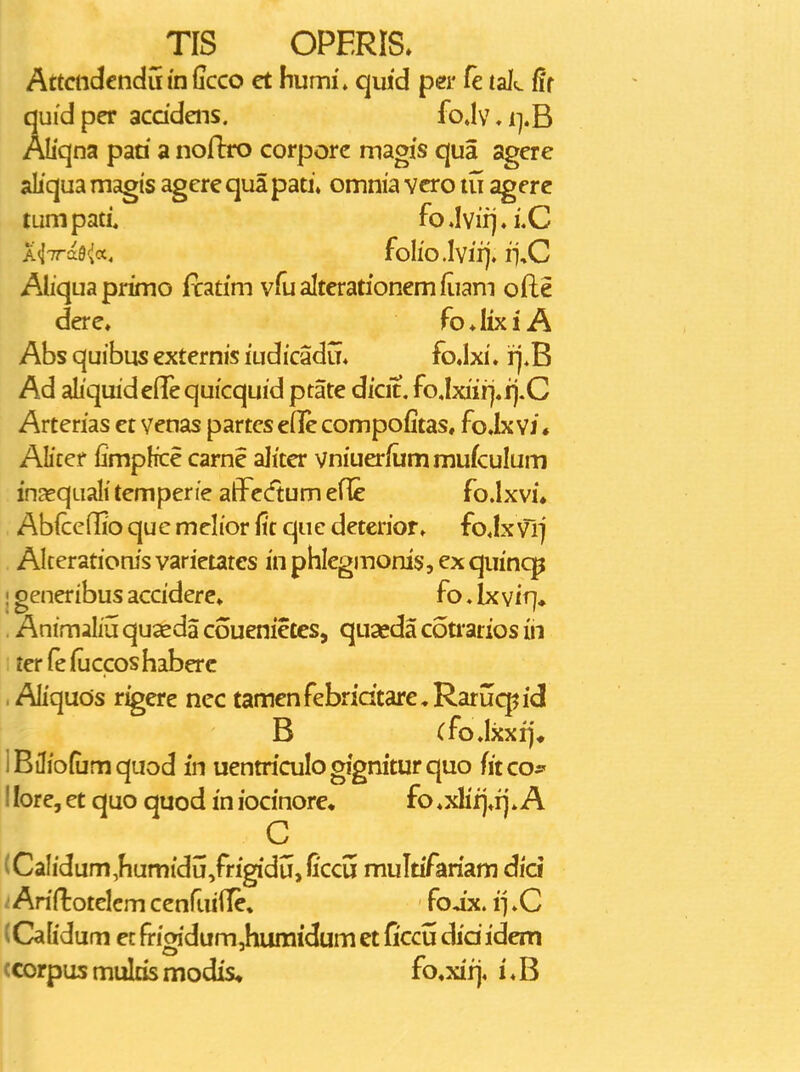 TIS OPERIS.
Attendendū in ſicco et humi. quid per ſe tale ſit
quid per accidens. fo.lv. ij.B
Aliqna pati a noſtro corpore magis quā agere
aliqua magis agere quā pati. omnia vero tū agere
tum pati. fo.lviij. i.C
folio.lviij. ij.C
Aliqua primo ſtatim vſu alterationem ſuam oſtē
dere. fo.lix i A
Abs quibus externis iudicādū. fo.lxi. ij.B
Ad aliquid eſſe quicquid ptāte dicit. fo.lxiiij.ij.C
Arterias et venas partes eſſe compoſitas. fo.lxvi.
Aliter ſimplicē carnē aliter vniuerſum muſculum
inæquali temperie affectum eſſe fo.lxvi.
Abſceſſio que melior ſit que deterior. fo.lxvij
Alterationis varietates in phlegmonis, ex quinqꝫ
generibus accidere. fo.lxviij.
Animaliū quædā cōueniētes, quædā cōtrarios in
ter ſe ſuccos habere
Aliquos rigere nec tamen febricitare. Rarūqꝫ id
B (fo.lxxij.
Bilioſum quod in uentriculo gignitur quo ſit co⸗
lore, et quo quod in iocinore. fo.xliij.ij.A
C
Calidum,humidū,frigidū, ſiccū multifariam dici
Ariſtotelem cenſuiſſe. fo.ix. ij.C
Calidum et frigidum,humidum et ſiccū dici idem
corpus multis modis. fo.xiij. i.B